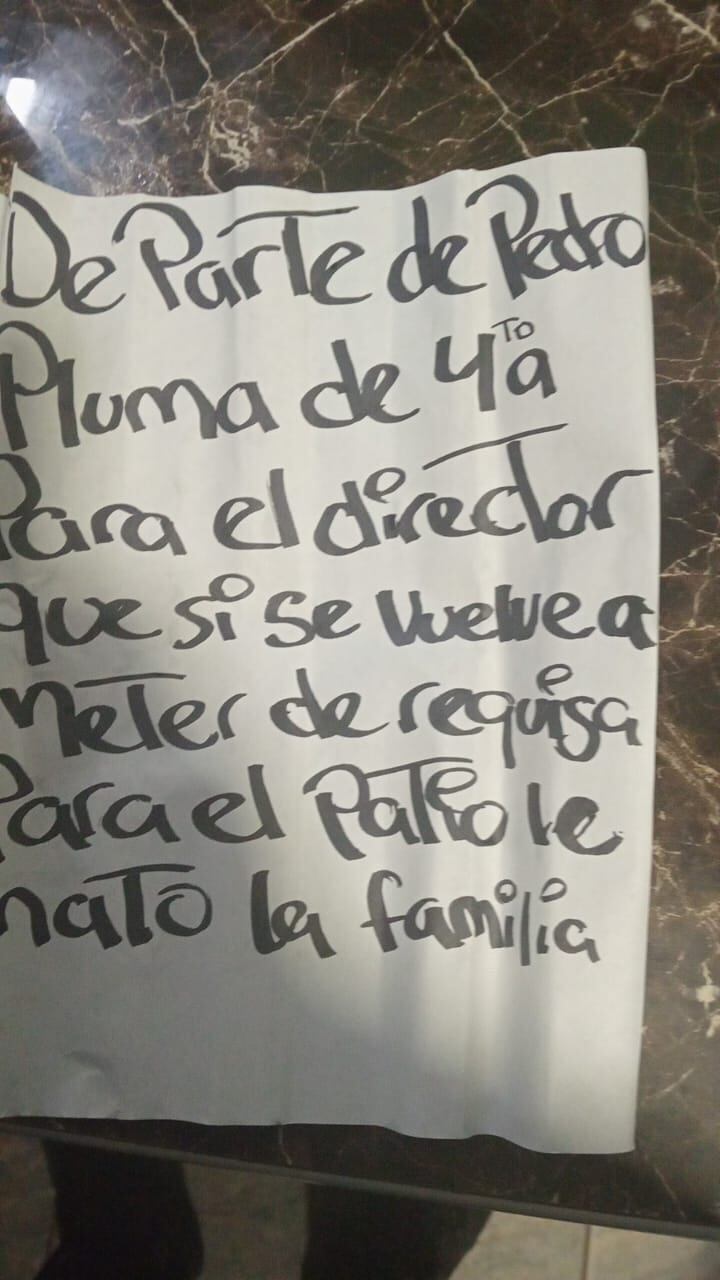 De Parte de Pedro
Pluma de 4to a
Para el director
que si se vuelve a
meter de requisa
Para el Patio le
mato la familia